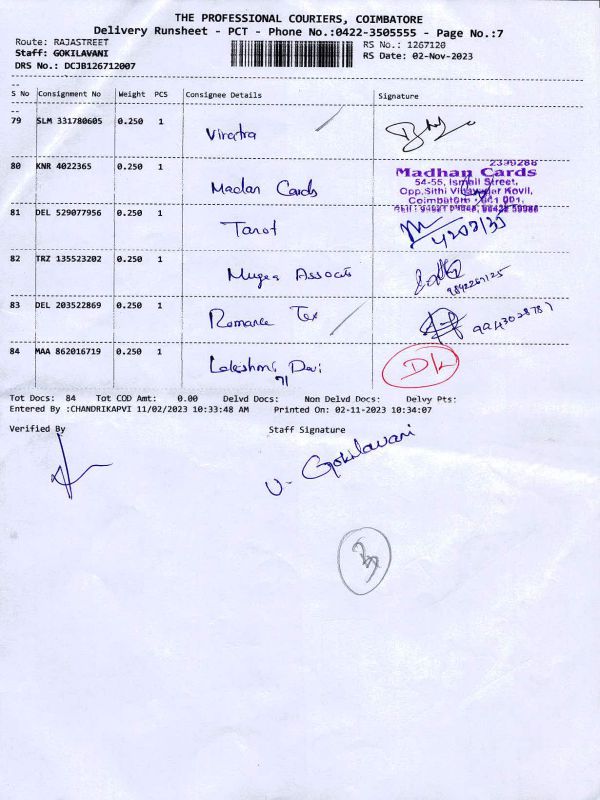 THE PROFESSIONAL COURIERS, COIMBATORE
Delivery Runsheet - PCT - Phone No.:0422-3505555 - Page No.:7
Route: RAJASTREET
RS No.: 1267120
Staff: GOKILAVANI
RS Date: 02-Nov-2023
DRS No.: DCJB126712007
S No Consignment No Weight PCS Consignee Details Signature
79 SLM 331780605 0.250 1
80 KNR 4022365 0.250 1 Madan Cards
2399286
Madhan Cards
54-56, Ismail Street,
Opp.Sithi Vinayagar Kovil,
Coimbatore - 641 001.
81 DEL 529077956 0.250 1 Tarot
82 TRZ 135523202 0.250 1 Mugea Assocats
9842267125
83 DEL 203522869 0.250 1 Romance Tex
9943028787
84 MAA 862016719 0.250 1 Lakshmi Devi D/L
71
Tot Docs: 84 Tot COD Amt: 0.00 Delvd Docs: Non Delvd Docs: Delvy Pts:
Entered By :CHANDRIKAPVI 11/02/2023 10:33:48 AM Printed On: 02-11-2023 10:34:07
Verified By Staff Signature
V. Gokilavani